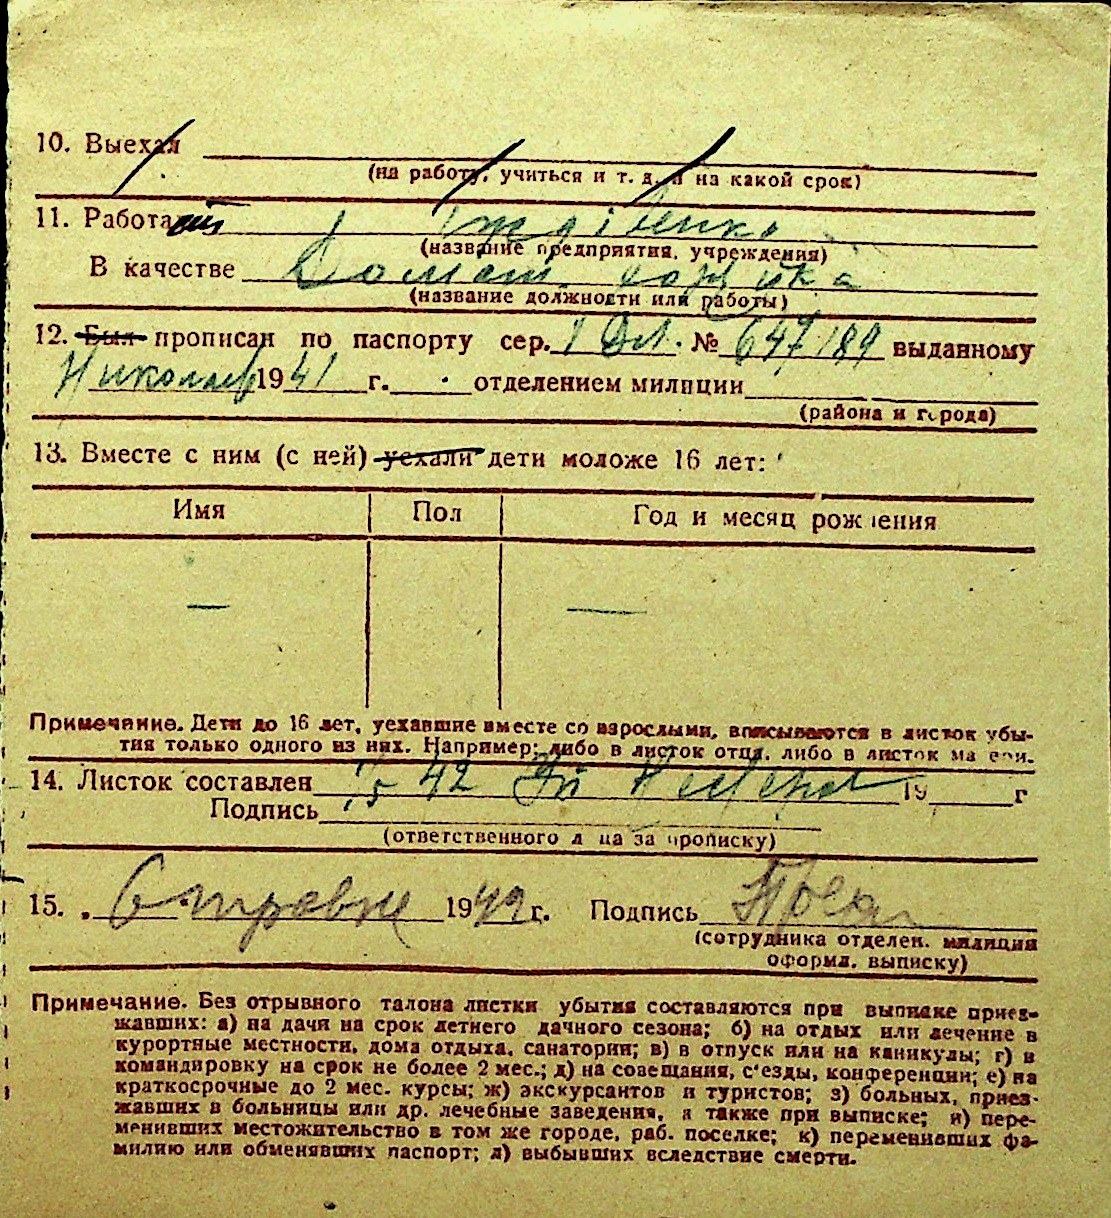 10. Выехал
(на работу, учиться и т. д. и на какой срок)
11. Работает Іждівенка
(название предприятия, учреждения)
В качестве Домаш. хозяйка
(название должности или работы)
12. Был прописан по паспорту сер. № 647189 выданному
Николаев 1941 г. отделением милиции
(района и города)
13. Вместе с ним (с ней) уехали дети моложе 16 лет:
Имя Пол Год и месяц рождения
— —
Примечание. Дети до 16 лет, уехавшие вместе со взрослыми, вписываются в листок убы-
тия только одного из них. Например: либо в листок отца, либо в листок матери.
14. Листок составлен 42 19 г
Подпись
(ответственного лица за прописку)
15. 1942 г. Подпись
(сотрудника отделен. милиции
оформл. выписку)
Примечание. Без отрывного талона листки убытия составляются при выписке приез-
жавших: а) на дачи на срок летнего дачного сезона; б) на отдых или лечение в
курортные местности, дома отдыха, санатории; в) в отпуск или на каникулы; г) в
командировку на срок не более 2 мес.; д) на совещания, с'езды, конференции; е) на
краткосрочные до 2 мес. курсы; ж) экскурсантов и туристов; з) больных, приез-
жавших в больницы или др. лечебные заведения, а также при выписке; и) пере-
менивших местожительство в том же городе, раб. поселке; к) переменивших фа-
милию или обменявших паспорт; л) выбывших вследствие смерти.